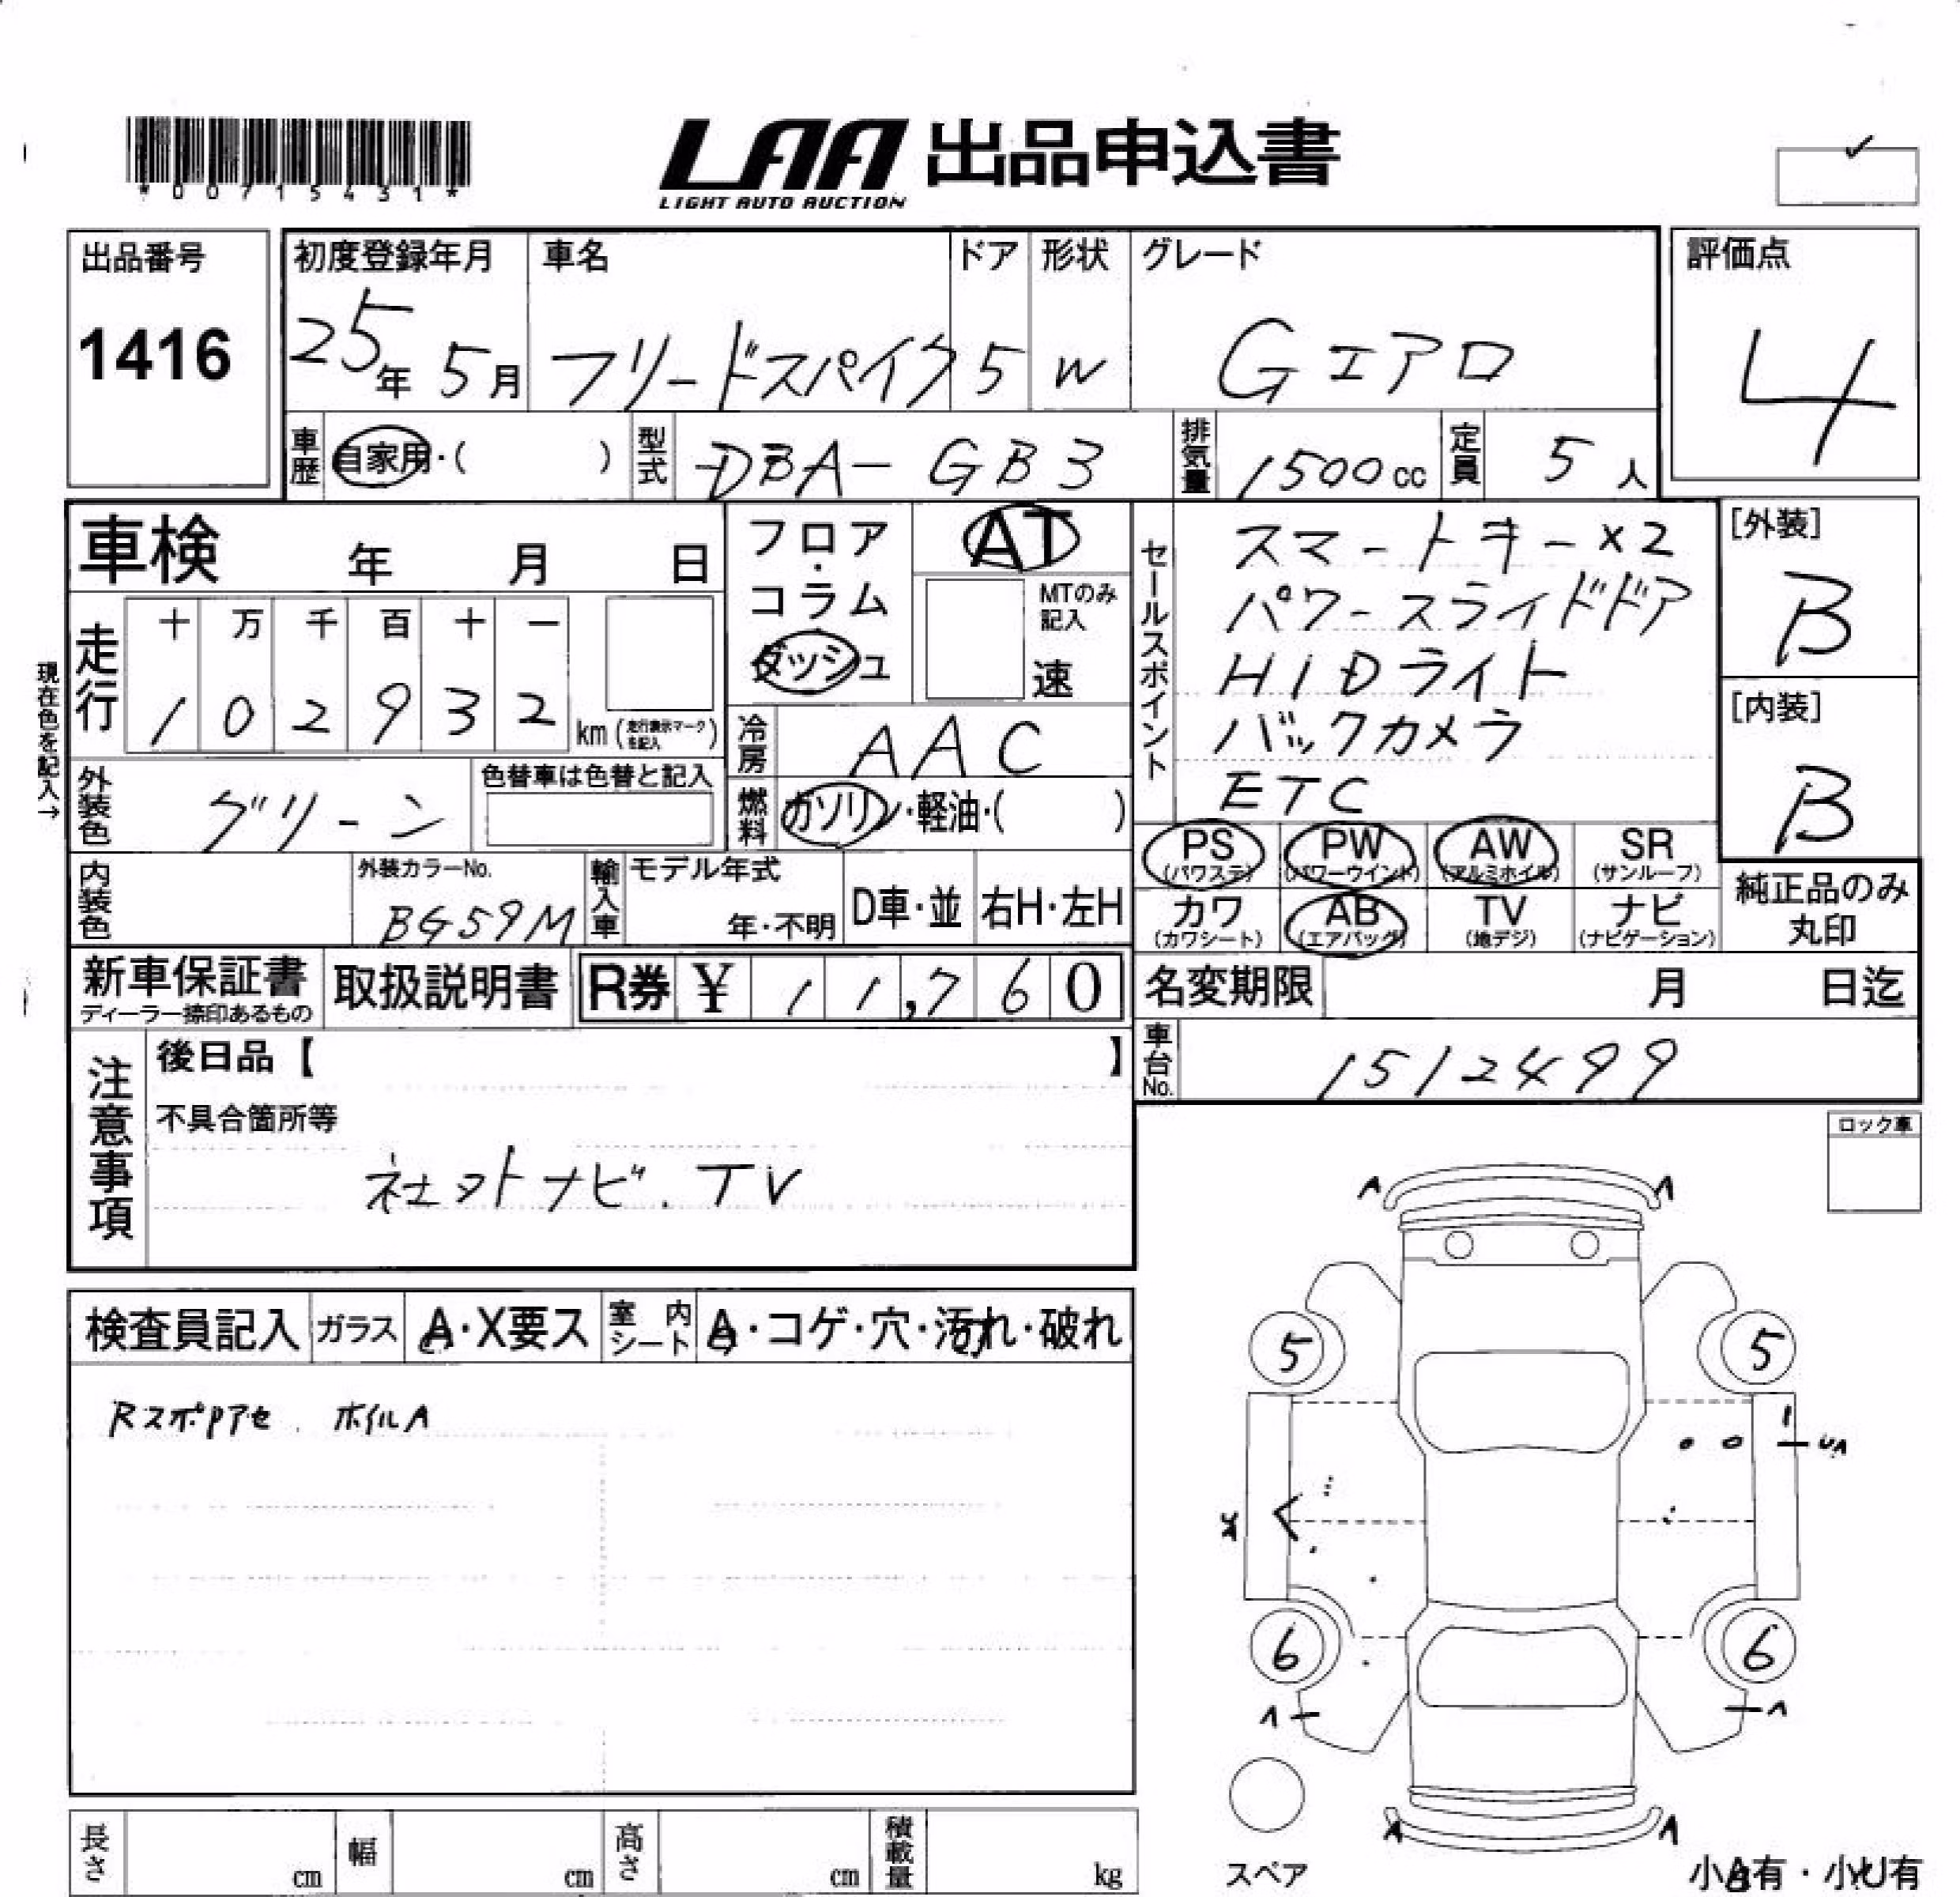 *00715431*
LAA 出品申込書
LIGHT AUTO AUCTION
出品番号
1416
初度登録年月
25年 5月
車名
フリードスパイク
ドア
5
形状
W
グレード
Gエアロ
評価点
4
車歴 自家用・( )
型式 DBA-GB3
排気量 1500cc
定員 5人
車検 年 月 日
走行
十 万 千 百 十 一
1 0 2 9 3 2 km(走行表示マークを記入)
現在色を記入→
フロア・コラム
ダッシュ
AT
MTのみ記入
速
冷房 AAC
燃料 ガソリン・軽油・( )
セールスポイント
スマートキー×2
パワースライドドア
HIDライト
バックカメラ
ETC
[外装]
B
[内装]
B
外装色 グリーン
色替車は色替と記入
内装色
外装カラーNo.
BG59M
輸入車 モデル年式
年・不明
D車・並
右H・左H
PS (パワステ)
PW (パワーウインド)
AW (アルミホイル)
SR (サンルーフ)
カワ (カワシート)
AB (エアバッグ)
TV (地デジ)
ナビ (ナビゲーション)
純正品のみ
丸印
新車保証書
ディーラー捺印あるもの
取扱説明書
R券 ¥ 11,760
名変期限 月 日迄
車台No. 1512499
注意事項
後日品【 】
不具合箇所等
社外ナビ.TV
ロック車
検査員記入
ガラス A・X要ス
室内シート A・コゲ・穴・汚れ・破れ
RスポPアセ. ホイルA
A A
5 5
UA
6 6
A A
A A
スペア
小A有・小U有
長さ cm
幅 cm
高さ cm
積載量 kg